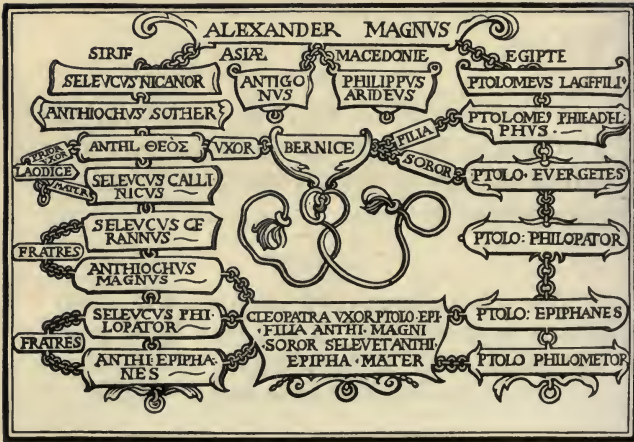 ALEXANDER MAGNVS
SIRIE ASIÆ MACEDONIE EGIPTE
SELEVCVS NICANOR
ANTIGO
NVS
PHILIPPVS
ARIDEVS
PTOLOMEVS LAGFFILIꝰ
ANTHIOCHVS SOTHER
PTOLOMEꝰ PHILADEL
PHVS
FILIA
ANTHI. ΘΕὸΣ
VXOR
BERNICE
PRIOR
VXOR
LAODICE
MATER
SOROR
PTOLO · EVERGETES
SELEVCVS CALLI
NICVS
SELEVCVS CE
RANNVS
FRATRES
ANTHIOCHVS
MAGNVS
PTOLO: PHILOPATOR
SELEVCVS PHI
LOPATOR
FRATRES
ANTHI·EPIPHA
NES
CLEOPATRA VXOR PTOLO·EPI
·FILIA ANTHI·MAGNI
·SOROR SELEVETANTHI·
EPIPHA·MATER
PTOLO: EPIPHANES
PTOLO PHILOMETOR